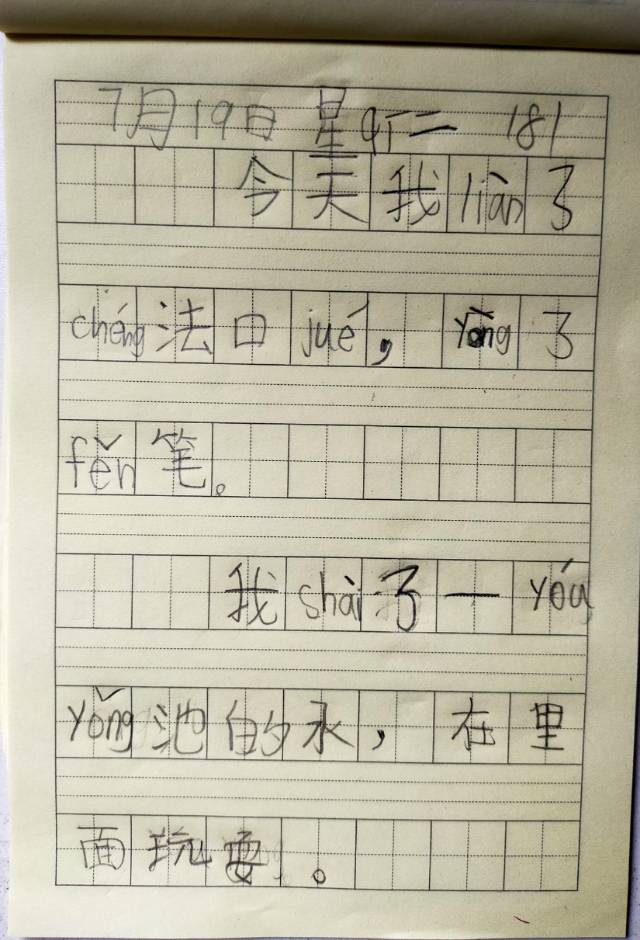 7月19日 星qī二 181
今天我liàn了
chéng法口jué，yòng了
fěn笔。
我shài了一yóu
yǒng池的水，在里
面玩耍。